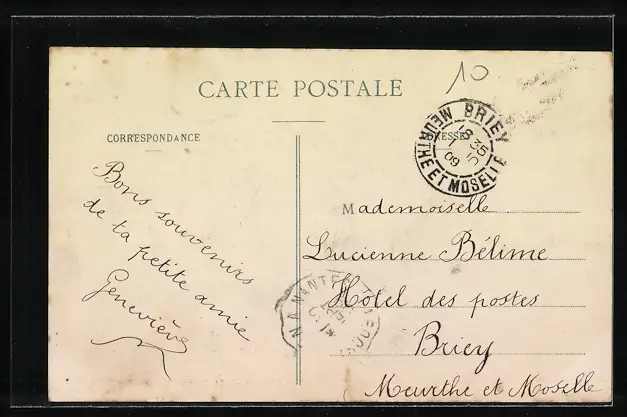 CARTE POSTALE
10
CORRESPONDANCE
BRIEY
8 35
09
MEURTHE ET MOSELLE
Bons souvenirs
de ta petite amie
Geneviève
Mademoiselle
Lucienne Bélime
Hôtel des postes
Briey
Meurthe et Moselle